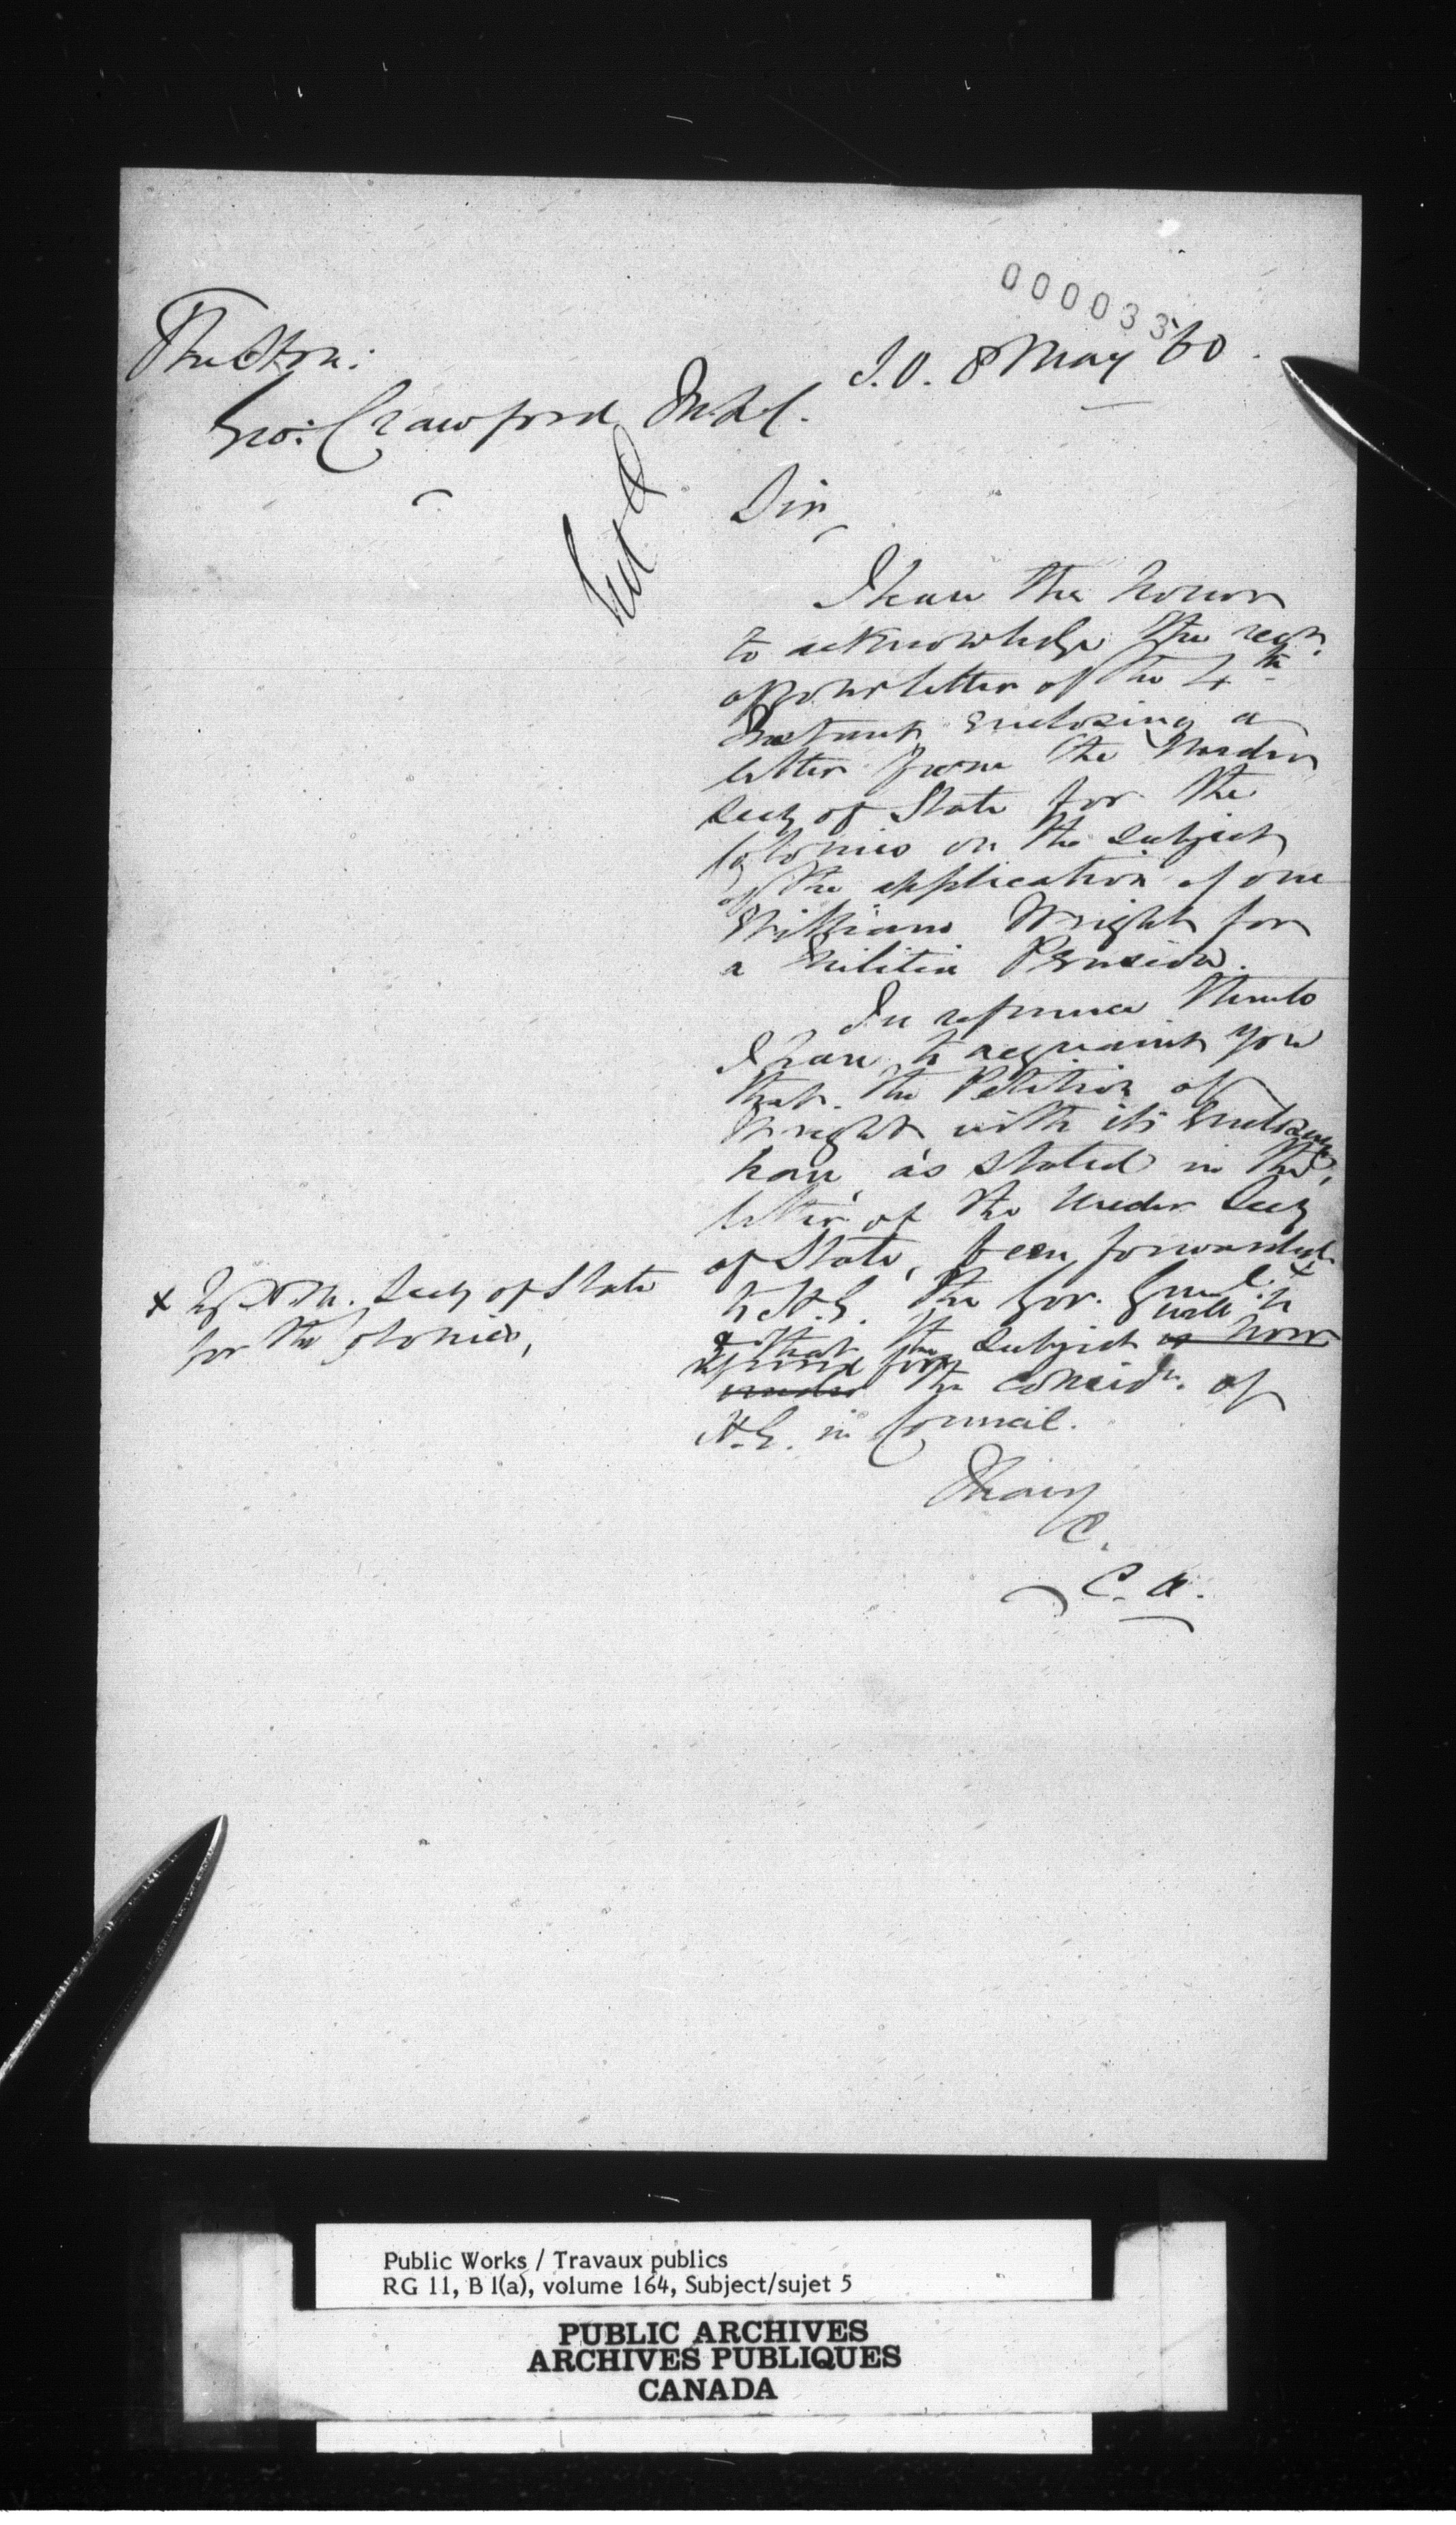 000033
S.O. 8 May 60.
The Hon:
Geo: Crawford M.L.C.
Sir,
I have the honor
to acknowledge the rect.
of your letter of the 4th
Instant enclosing a
letter from the Under
Secy of State for the
Colonies on the subject
of the application of one
William Wright for
a Militia Pension.
In reference thereto
I have to acquaint you
that the Petition of
Wright with its Enclosures
have, as stated in the
letter of the Under Secy
of State, been forwarded x
to H.E. the Gov. Genl.
& that the subject is now will be
under the considn. of
H.E. in Council.
x by the Secy of State
for the Colonies,
I have
&c.
C. A.
Public Works / Travaux publics
RG 11, B 1(a), volume 164, Subject/sujet 5
PUBLIC ARCHIVES
ARCHIVES PUBLIQUES
CANADA